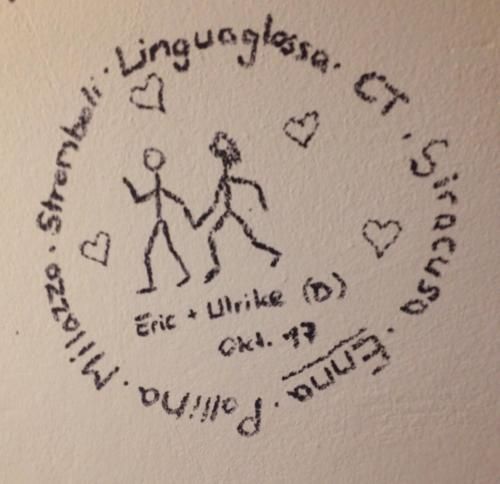 Linguaglossa · CT · Siracusa · Enna · Pollina · Milazzo · Stromboli ·
Eric + Ulrike (D)
Okt. 17